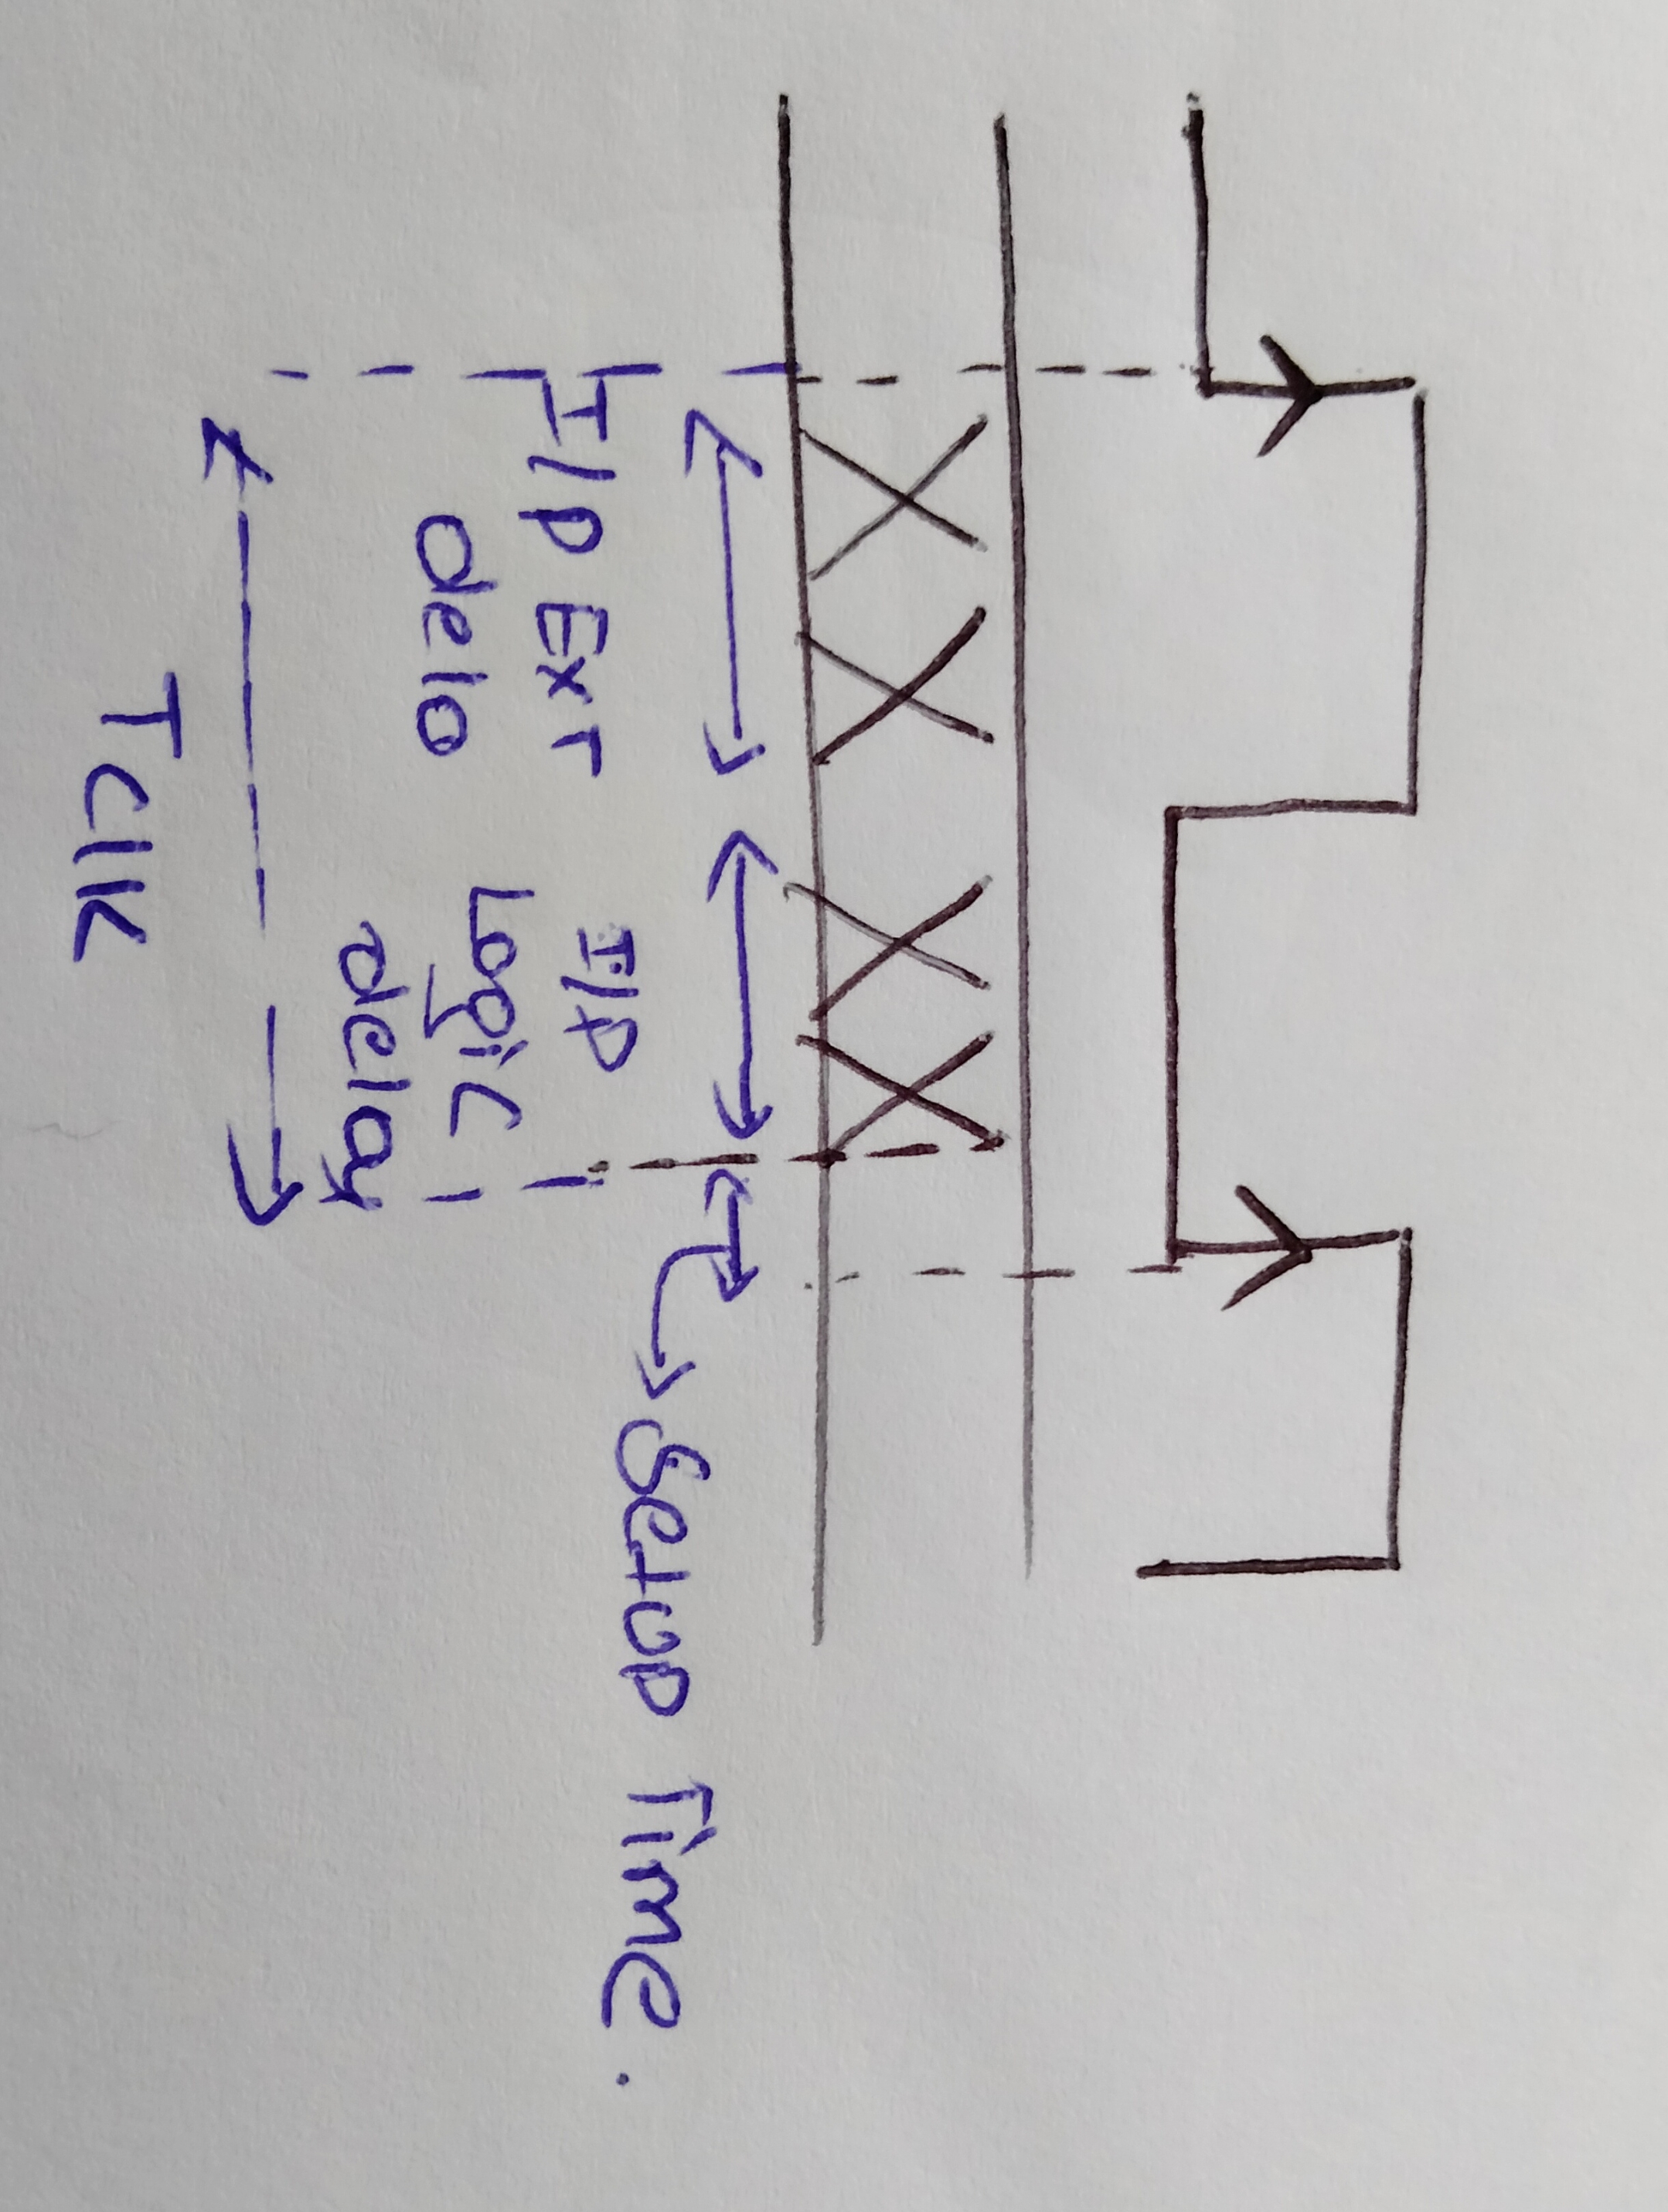 I/P Ext
delo
I/P
Logic
delay
Setup Time.
TClK